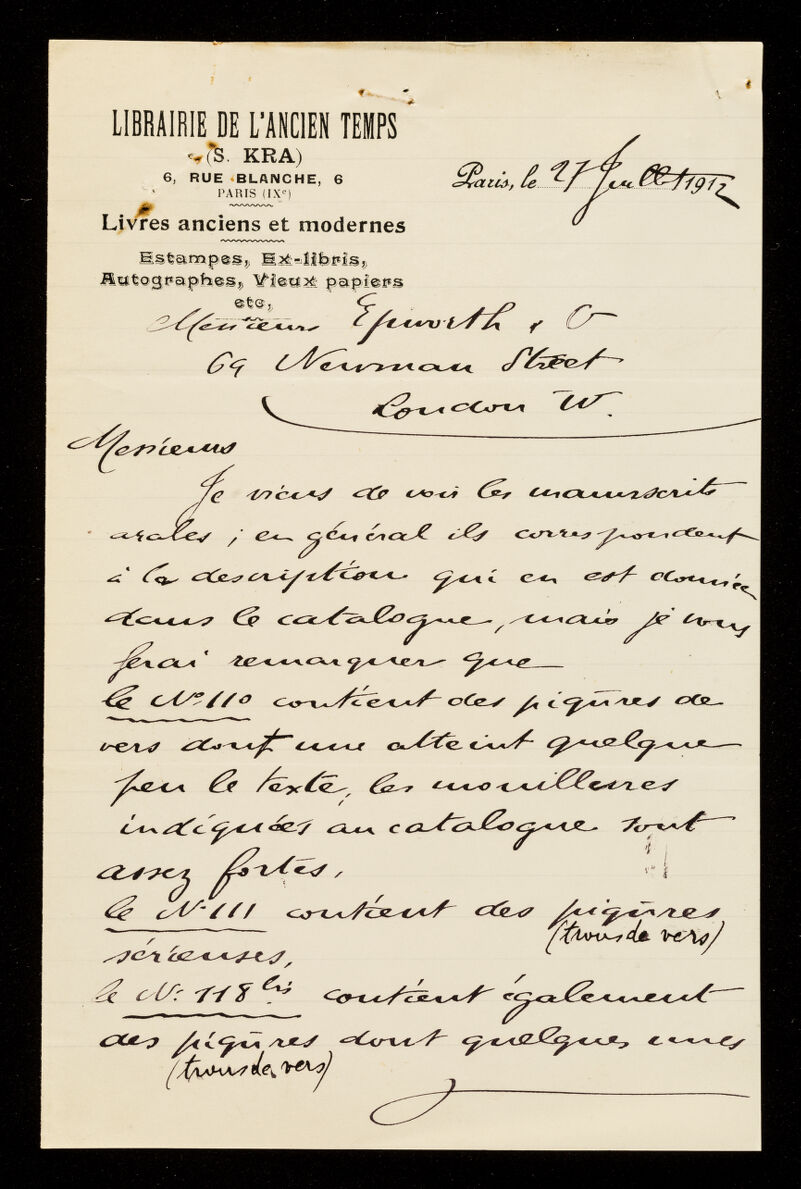 LIBRAIRIE DE L'ANCIEN TEMPS
(S. KRA)
6, RUE BLANCHE, 6
PARIS (IXᵉ)
Livres anciens et modernes
Estampes, Ex-libris,
Autographes, Vieux papiers
etc,
Paris, le 27 Juillet 1912
Messieurs Epworth & Cº
69 Newman Street
London W.
Messieurs
Je viens de voir les manuscrits
arabes ; en général ils correspondent
à la description qui en est donnée
dans le catalogue, mais je vous
ferai remarquer que
le Nº 110 contient des piqûres de
vers dont une atteint quelque
peu le texte, les mouillures
indiquées au catalogue sont
assez fortes,
le Nº 111 contient des piqûres
(trous de vers)
sérieuses,
le Nº 118 bis contient également
des piqûres dont quelques unes
(trous de vers)